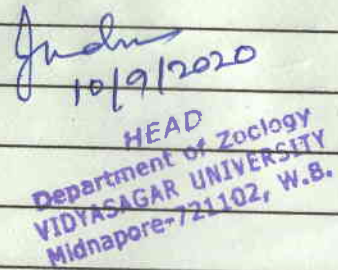 10/9/2020
HEAD
Department of Zoology
VIDYASAGAR UNIVERSITY
Midnapore-721102, W.B.